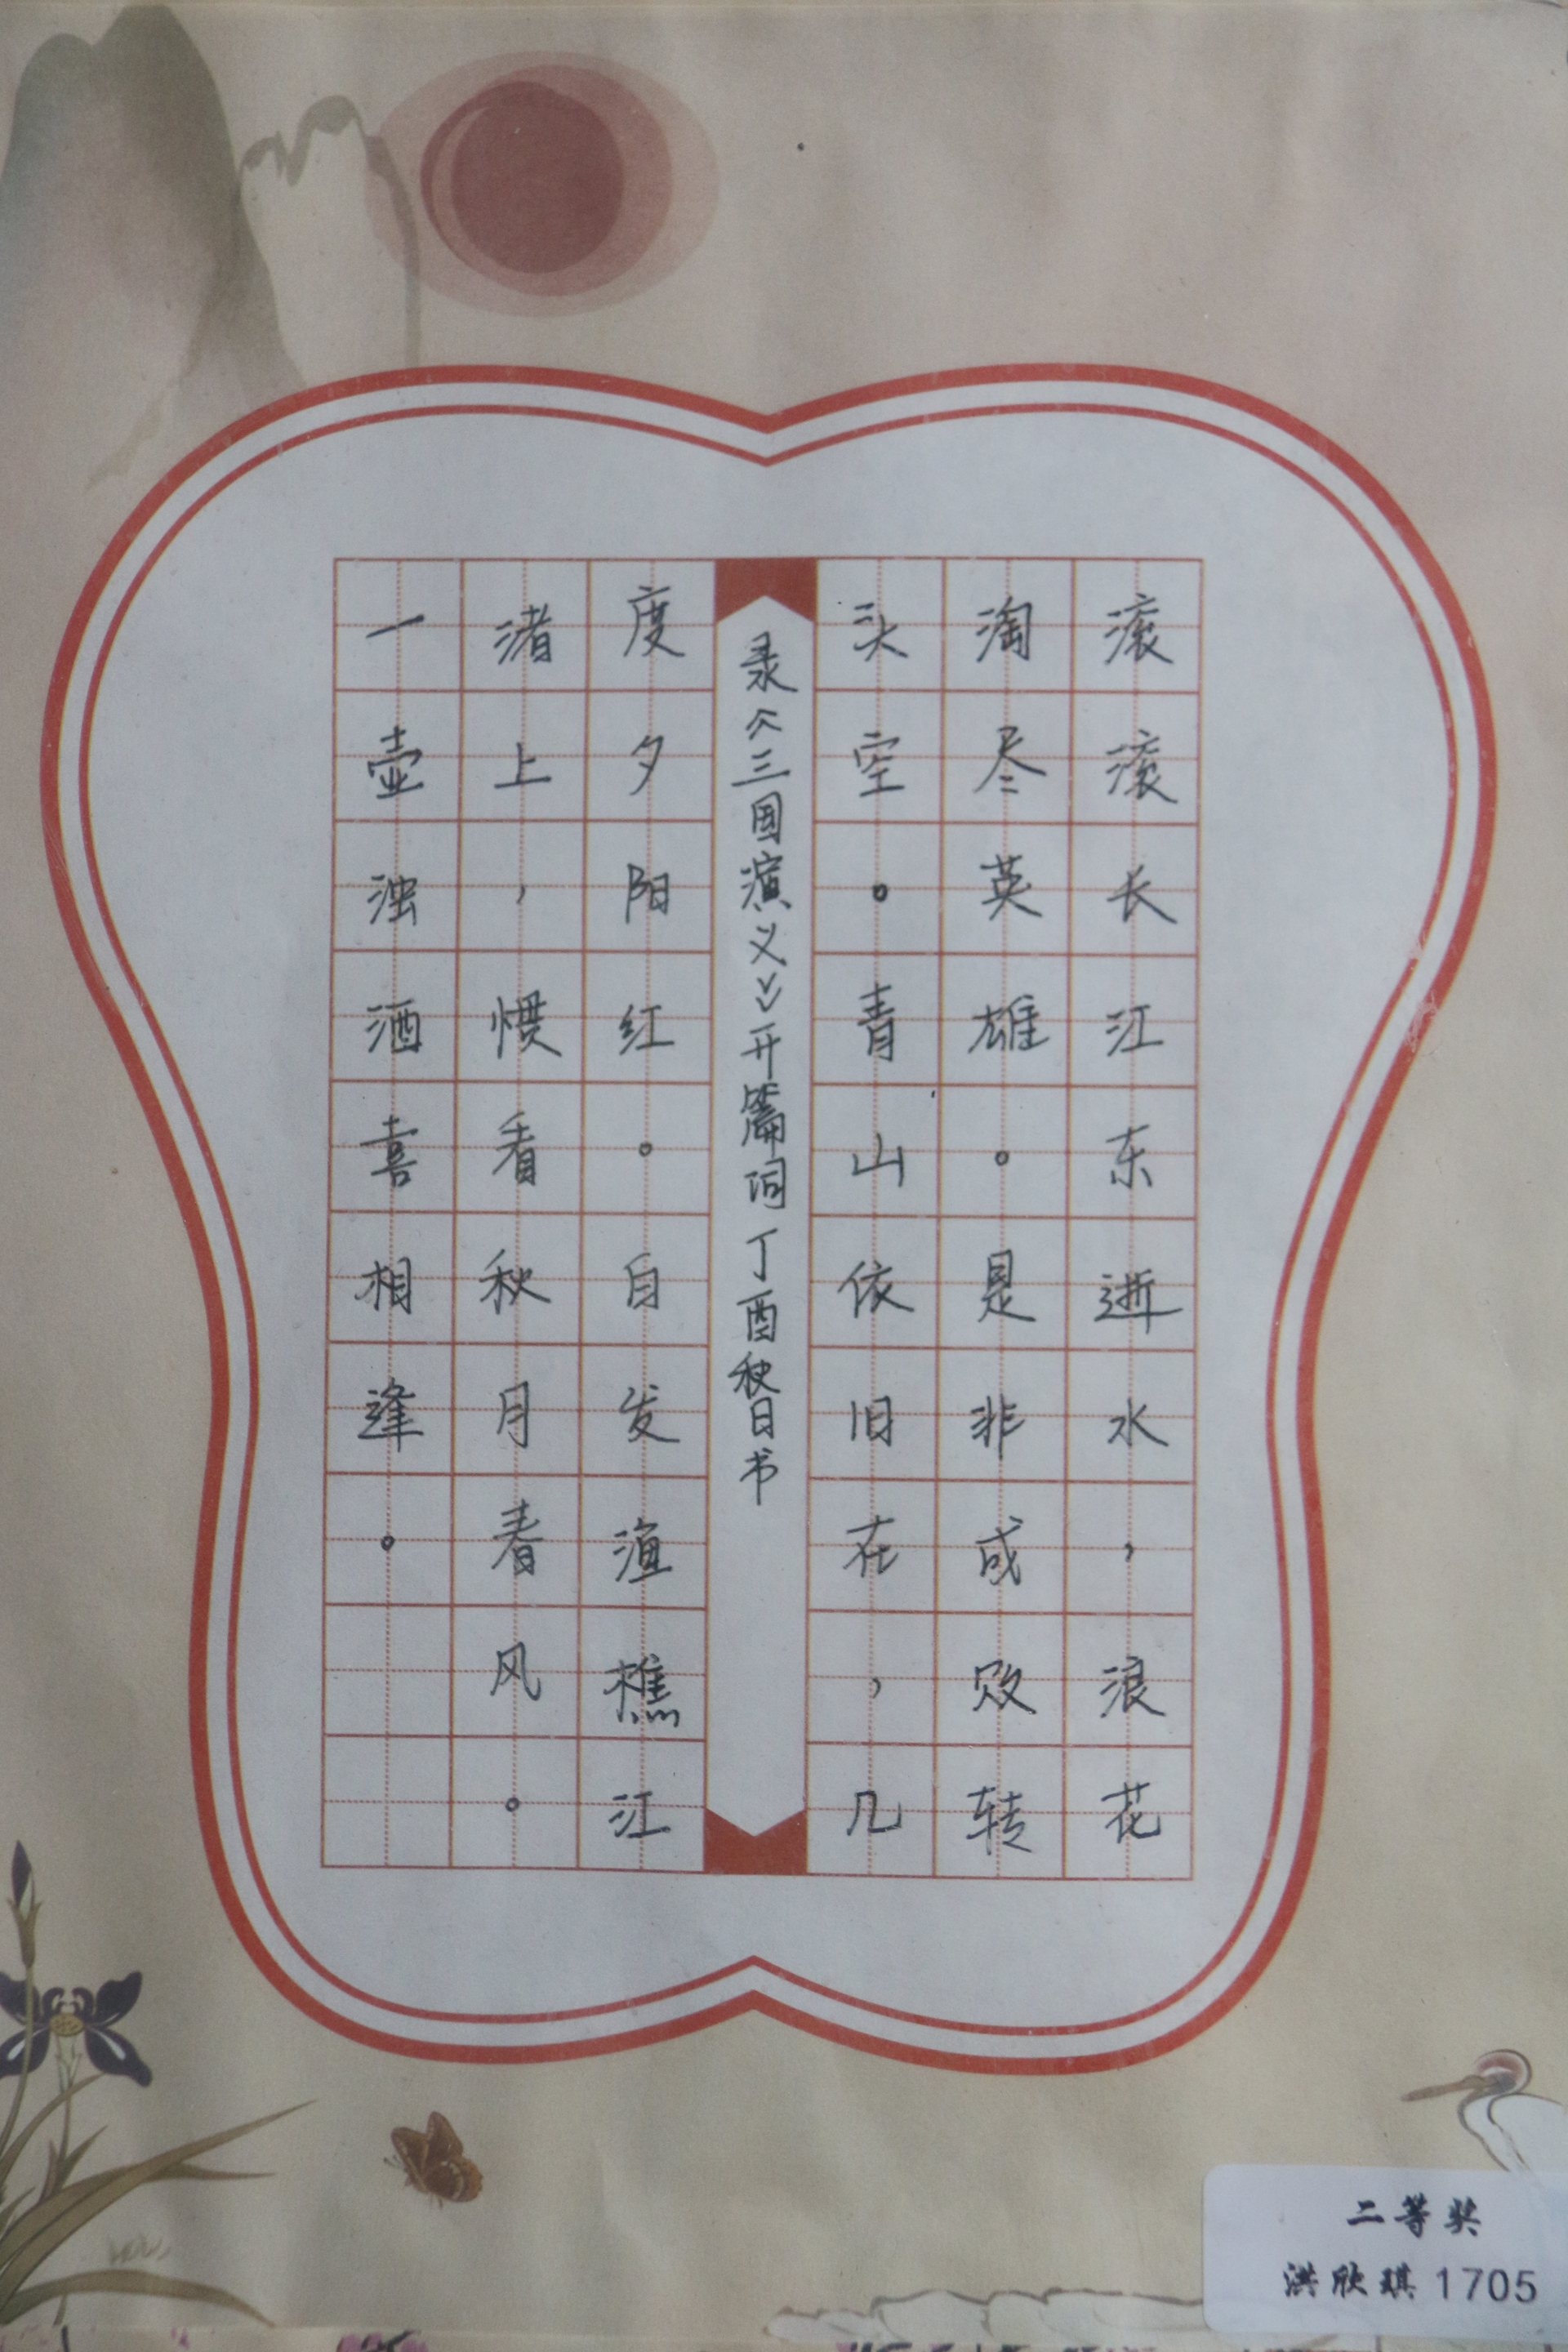 滚滚长江东逝水，浪花
淘尽英雄。是非成败转
头空。青山依旧在，几
录《三国演义》开篇词 丁酉秋日书
度夕阳红。自发渔樵江
渚上，惯看秋月春风。
一壶浊酒喜相逢。
二等奖
洪欣琪1705